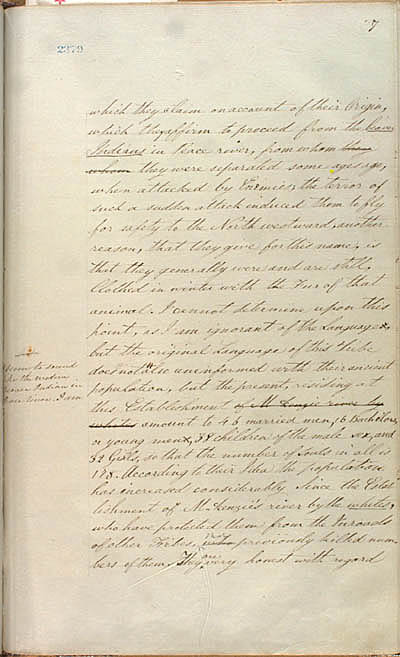 7
2379
which they claim on account of their Origin,
which they affirm to proceed from the beaver
Indians in Peace river, from whom they
whom they were separated some ages ago,
when attacked by Enemies, the terror of
such a sudden attack induced them to fly
for safety to the North westward, another
reason, that they give for this name, is
that they generally were and are still,
Clothed in winter with the Fur of that
animal. I cannot determine upon this
point, as I am ignorant of the Language &c
but the original Language of this Tribe
does not
to sound
like the modern
Beaver Indian in
Peace River. I am
uninformed with their ancient
population, but the present, residing at
this Establishment of McKenzie river by
whites amount to 45 married men, 16 Bachelors,
or young men, children of the male sex, and
32 Girls, so that the number of Souls in all is
According to their Idea the population
has increased considerably Since the Estab
lishment of McKenzie's river by the whites,
who have protected them from the Inroads
of other Tribes, previously killed num
bers of them, They are very honest with regard